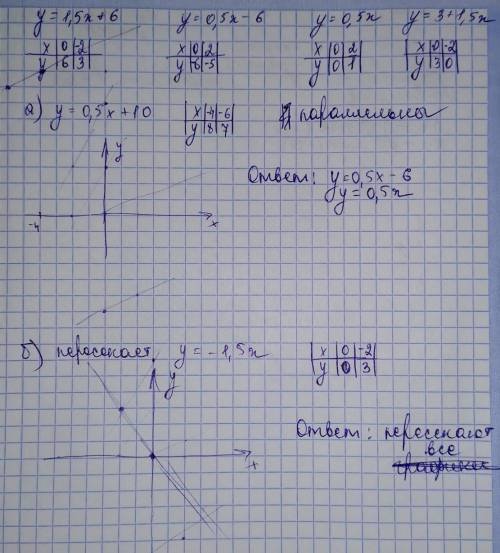 y=1,5x+6 y=0,5x-6 y=0,5x y=3+1,5x
x 0 -2 x 0 2 x 0 2 x 0 -2
y 6 3 y -6 -5 y 0 1 y 3 0
а) y=0,5x+10 x -4 -6 параллельны
y 8 7
y
Ответ: y=0,5x-6
y=0,5x
-4 x
б) пересекает y=-1,5x x 0 -2
y 0 3
y
Ответ: пересекают
все
x